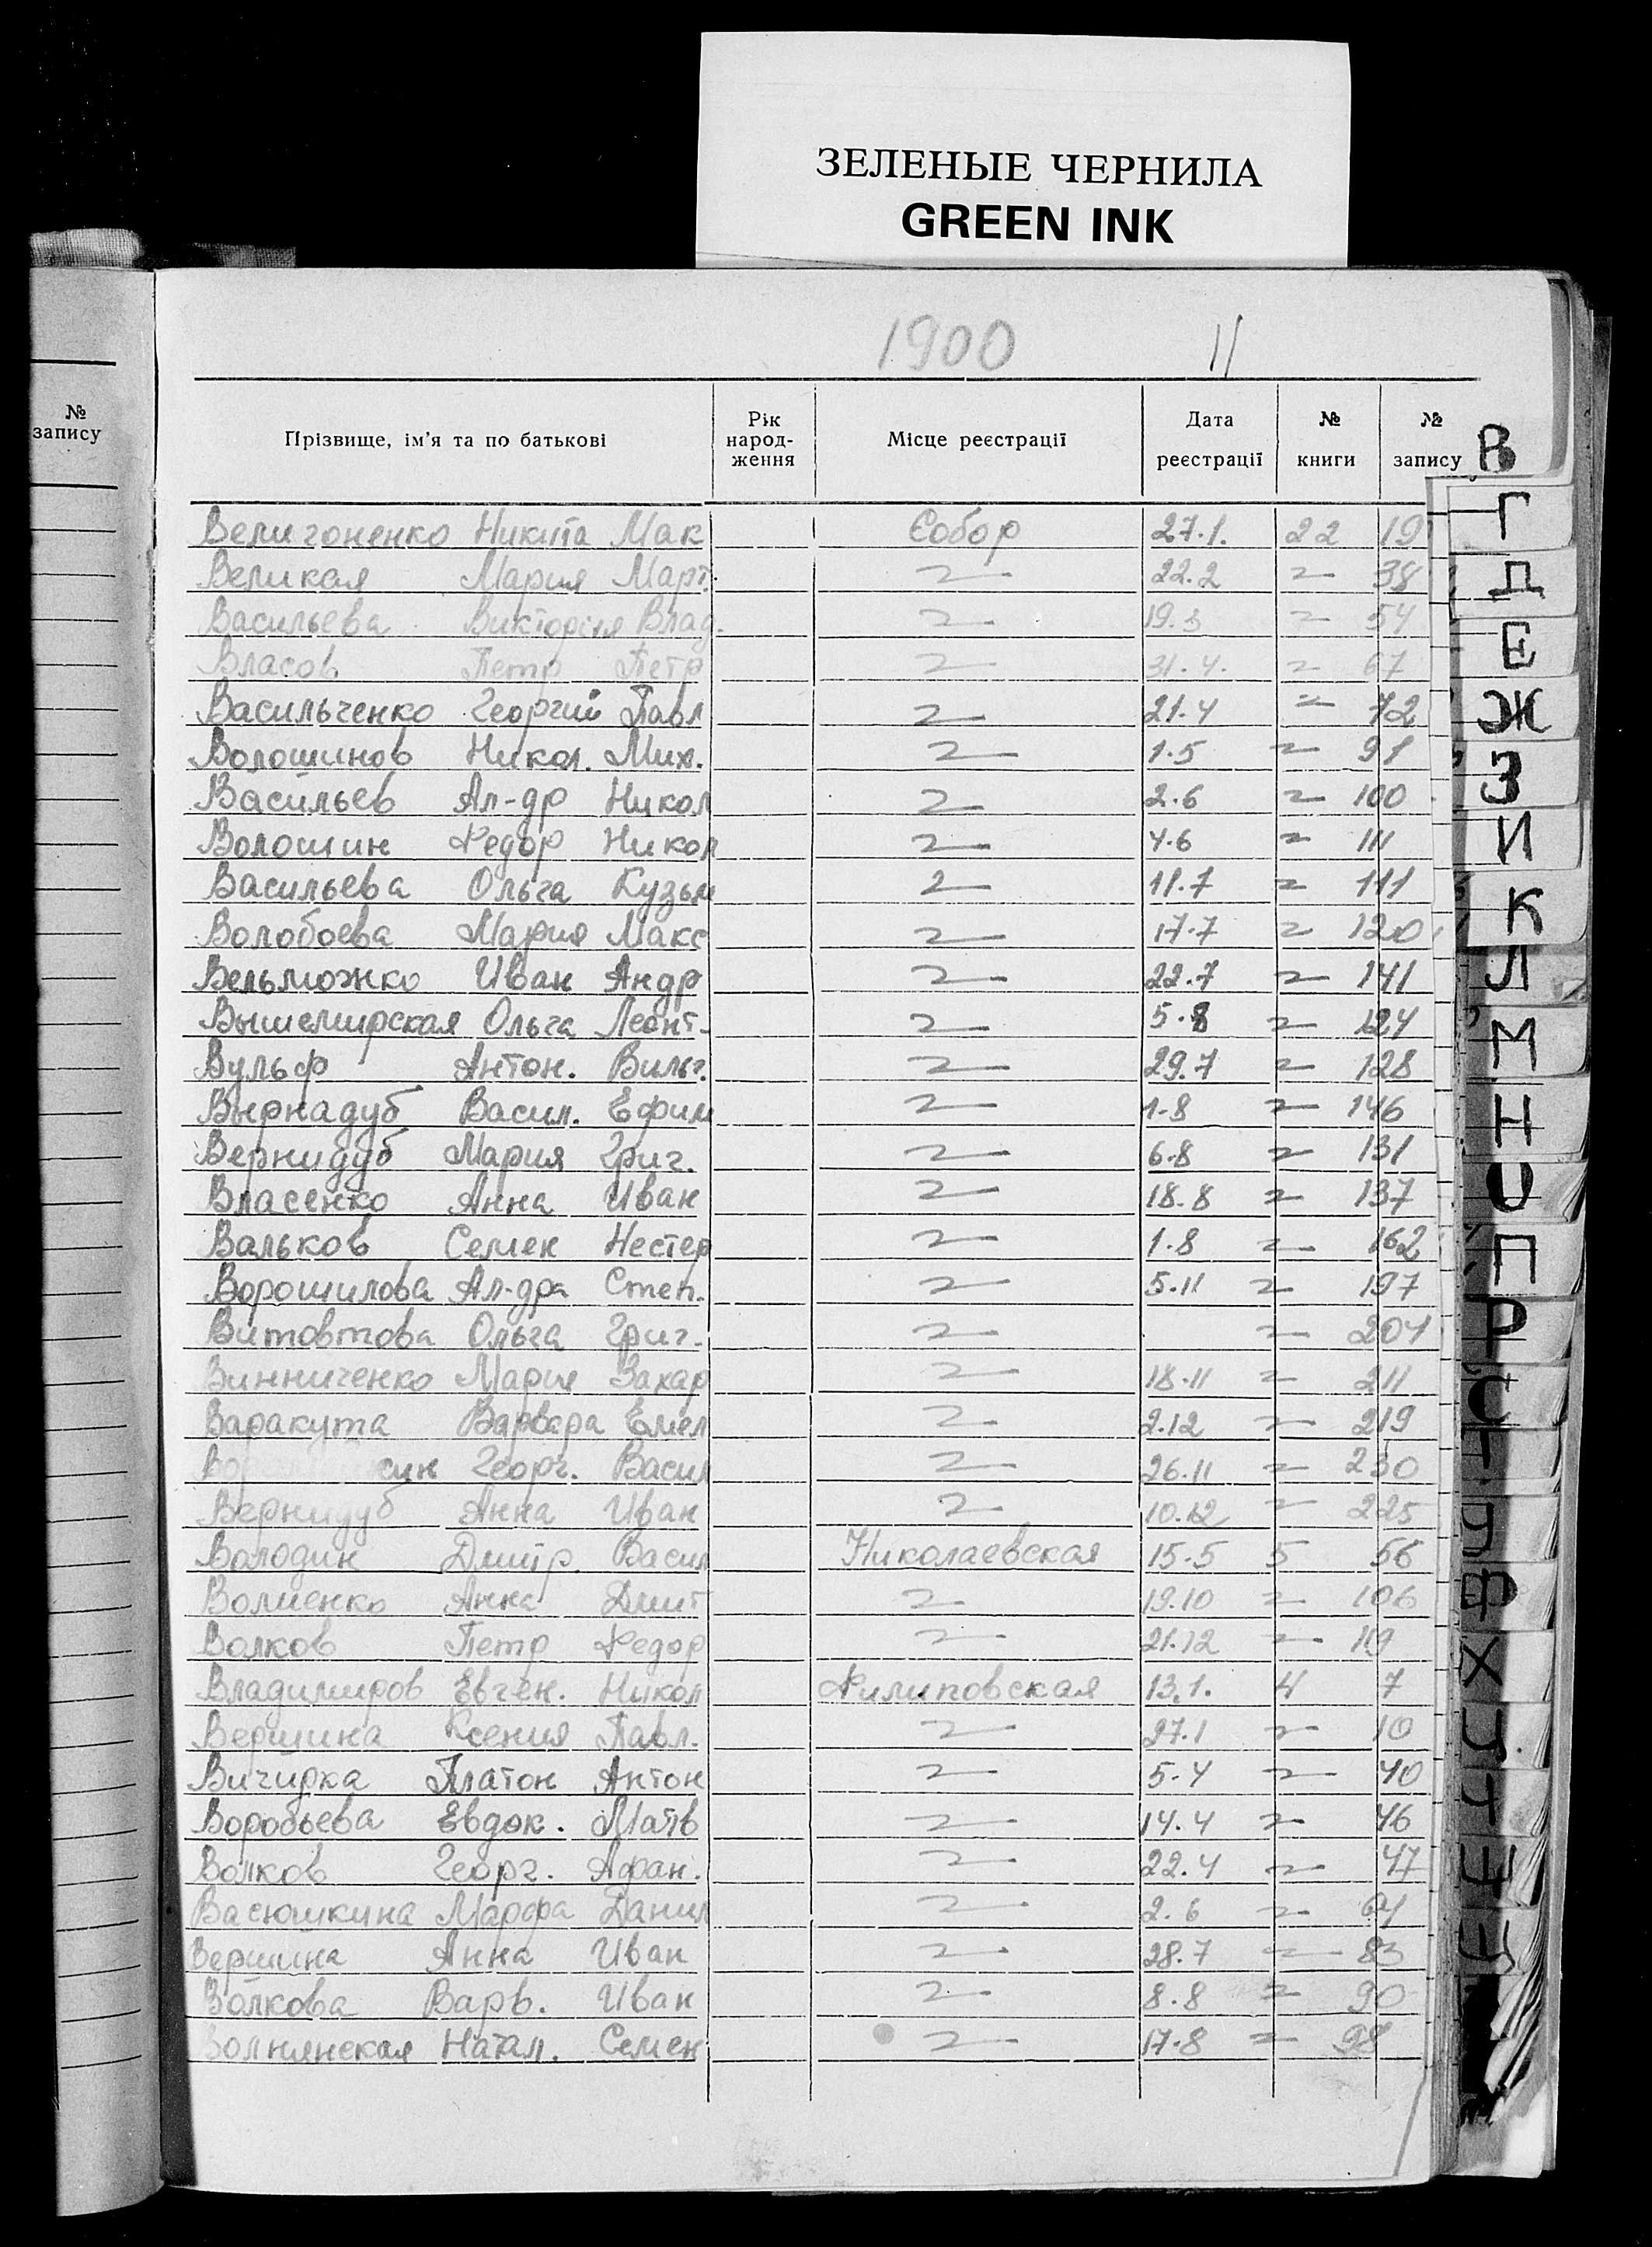 ЗЕЛЕНЫЕ ЧЕРНИЛА
GREEN INK
1900 11
№ запису
Прізвище, ім'я та по батькові Рік народ-ження Місце реєстрації Дата реєстрації № книги № запису
Велигоненко Никита Мак Собор 27.1. 22 19
Великая Мария Март. 〃 22.2 〃 38
Васильева Виктория Влад. 〃 19.3 〃 54
Власов Петр Петр 〃 31.4. 〃 67
Васильченко Георгий Павл 〃 21.4 〃 72
Волошинов Никол. Мих. 〃 1.5 〃 91
Васильев Ал-др Никол 〃 2.6 〃 100
Волошин Федор Никол 〃 4.6 〃 111
Васильева Ольга Кузьм 〃 11.7 〃 111
Волобоева Мария Макс 〃 17.7 〃 120
Вельможко Иван Андр 〃 22.7 〃 141
Вышемирская Ольга Леонт. 〃 5.8 〃 124
Вульф Антон. Вильг. 〃 29.7 〃 128
Вырнадуб Васил. Ефим 〃 1-8 〃 146
Вернидуб Мария Григ. 〃 6.8 〃 131
Власенко Анна Иван 〃 18.8 〃 137
Вальков Семен Нестер 〃 1.8 〃 162
Ворошилова Ал-дра Степ. 〃 5.11 〃 197
Витовтова Ольга Григ. 〃 〃 204
Винниченко Мария Захар 〃 18.11 〃 211
Варакута Варвара Емел 〃 2.12 〃 219
Георг. Васил 〃 26.11 〃 230
Вернидуб Анна Иван 〃 10.12 〃 225
Володин Дмитр. Васил Николаевская 15.5 5 56
Волиенко Анна Дмит 〃 19.10 〃 106
Волков Петр Федор 〃 21.12 〃 119
Владимиров Евген. Никол Филиповская 13.1. 4 7
Вершина Ксения Павл. 〃 27.1 〃 10
Вичирка Платон Антон 〃 5.4 〃 40
Воробьева Евдок. Матв 〃 14.4 〃 46
Волков Георг. Афан. 〃 22.4 〃 47
Васюшкина Марфа Данил 〃 2.6 〃 64
Вершина Анна Иван 〃 28.7 〃 83
Волкова Варв. Иван 〃 8.8 〃 90
Волнянская Натал. Семен 〃 17.8 〃 98
В
Г
Д
Е
Ж
З
И
К
Л
М
Н
О
П
Р
С
Т
Ф
Х
Ц